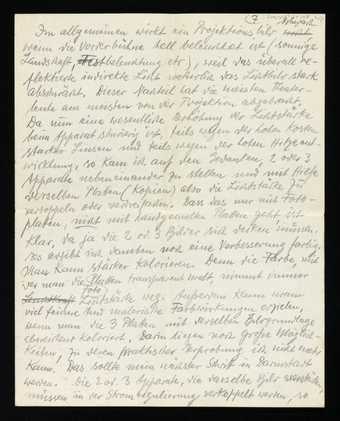 7
Im allgemeinen wirkt ein Projektionsbild
wenn die Vorderbühne hell beleuchtet ist (sonnige
Landschaft, Festbeleuchtung etc), weil das überall re-
flektierte indirekte Licht natürlich das Lichtbild stark
abschwächt. Dieser Nachteil hat die meisten Theater-
leute am meisten von der Projektion abgebracht.
Da nun eine wesentliche Erhöhung der Lichtstärke
beim Apparat schwierig ist, teils wegen der hohen Kosten
starker Linsen und teils wegen der hohen Hitzeent-
wicklung, so kam ich auf den Gedanken, 2 oder 3
Apparate nebeneinander zu stellen und mit Hilfe
derselben Platten (Kopien) also die Lichtstärke zu
verdoppeln oder verdreifachen. Dass das nur mit Foto-
platten, nicht mit handgemalten Platten geht ist
klar, da ja die 2 od. 3 Bilder sich decken müssen.
Es ergibt sich daneben noch eine Verbesserung farbig.
Man kann stärker kolorieren. Denn die Farbe, mit
der man die Foto Platten transparent malt, nimmt immer
Lichtstärke weg. Ausserdem kann man
viel feinere und malerische Farbwirkungen erzielen,
wenn man die 3 Platten mit derselben Fotogrundlage
abweichend koloriert. Darin liegen noch grosse Möglich-
keiten, zu deren praktischer Erprobung ich nicht mehr
kam. Das sollte mein nächster Schritt in Darmstadt
werden. Die 2 od. 3 Apparate, die dasselbe Bild
müssen in der Stromregulierung verkoppelt werden, so